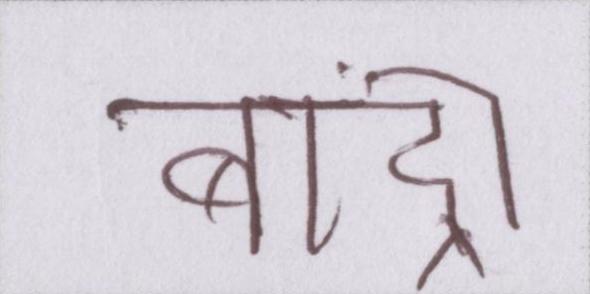 बांद्री